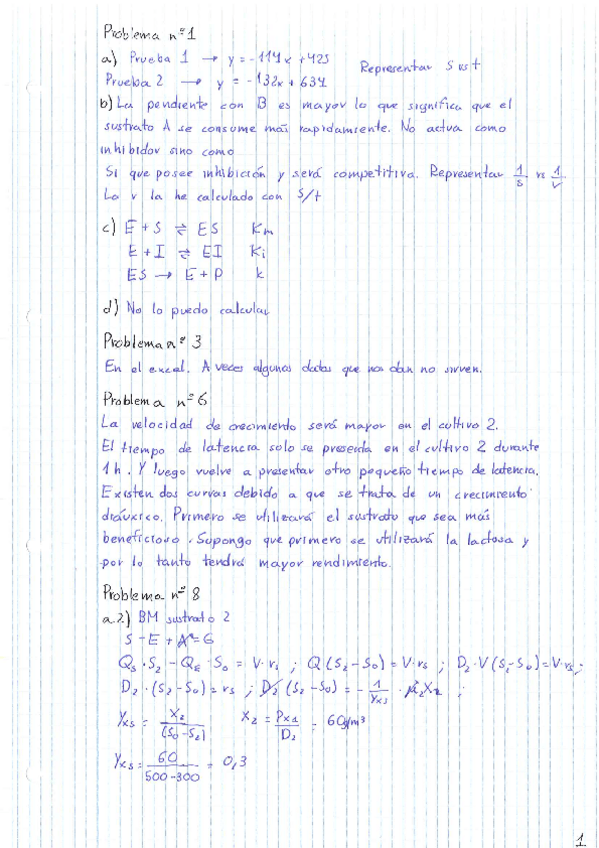 Problema nº1
a) Prueba 1 → y = -114x + 425
Representar S vs t
Prueba 2 → y = -132x + 637
b) La pendiente con B es mayor lo que significa que el
sustrato A se consume mas rapidamente. No actua como
inhibidor sino como
Si que posee inhibición y será competitiva. Representar 1/s vs 1/v
La v la he calculado con S/t
c) E + S ⇌ ES Km
E + I ⇌ EI Ki
ES → E + P k
d) No lo puedo calcular
Problema nº 3
En el excel. A veces algunos datos que nos dan no sirven.
Problema nº6
La velocidad de crecimiento será mayor en el cultivo 2.
El tiempo de latencia solo se presenta en el cultivo 2 durante
1h. Y luego vuelve a presentar otro pequeño tiempo de latencia.
Existen dos curvas debido a que se trata de un crecimiento
diáuxico. Primero se utilizará el sustrato que sea más
beneficioso. Supongo que primero se utilizará la lactosa y
por lo tanto tendrá mayor rendimiento.
Problema nº 8
a.2) BM sustrato 2
S - E + A = G
Qs · S2 - QE · S0 = V · rs ; Q (S2 - S0) = V · rs ; D2 · V (S2 - S0) = V · rs ;
D2 · (S2 - S0) = rs ; D2 (S2 - S0) = - 1/Yxs · μ2 X2 ;
Yxs = X2/(S0 - S2) X2 = Px2/D2 = 60 g/m³
Yxs = 60/500-300 = 0,3
1